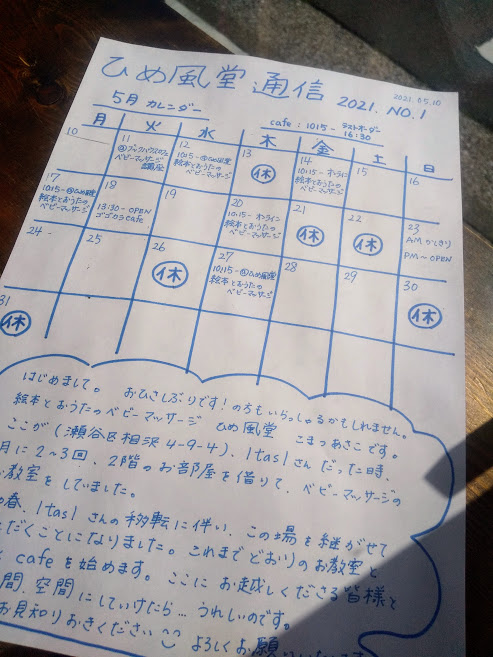 ひめ風堂通信 2021. NO.1
2021.05.10
5月 カレンダー
cafe : 10:15 - ラストオーダー 16:30
月 火 水 木 金 土 日
10
11
ブックハウスカフェ
ベビーマッサージ
講座
12
10:15-@ひめ風堂
絵本とおうたの
ベビーマッサージ
13
休
14
10:15-オンライン
絵本とおうたの
ベビーマッサージ
15
16
17
10:15-@ひめ風堂
絵本とおうたの
ベビーマッサージ
18
13:30-OPEN
ゴゴカラcafe
19
20
10:15-オンライン
絵本とおうたの
ベビーマッサージ
21
休
22
休
23
AM かしきり
PM~OPEN
24
25
26
休
27
10:15-@ひめ風堂
絵本とおうたの
ベビーマッサージ
28
29
30
休
31
休
はじめまして。 おひさしぶりです!の方もいらっしゃるかもしれません。
絵本とおうたのベビーマッサージ ひめ風堂 こまつあさこです。
ここが(瀬谷区相沢4-9-4)、Itasiさんだった時、
月に2~3回、2階のお部屋を借りて、ベビーマッサージの
教室をしていました。
春、Itasiさんの移転に伴い、この場を継がせて
だくことになりました。これまでどおりのお教室と
cafeを始めます。ここにお越しくださる皆様と
間、空間にしていけたら…うれしいのです。
お見知りおきください よろしくお願